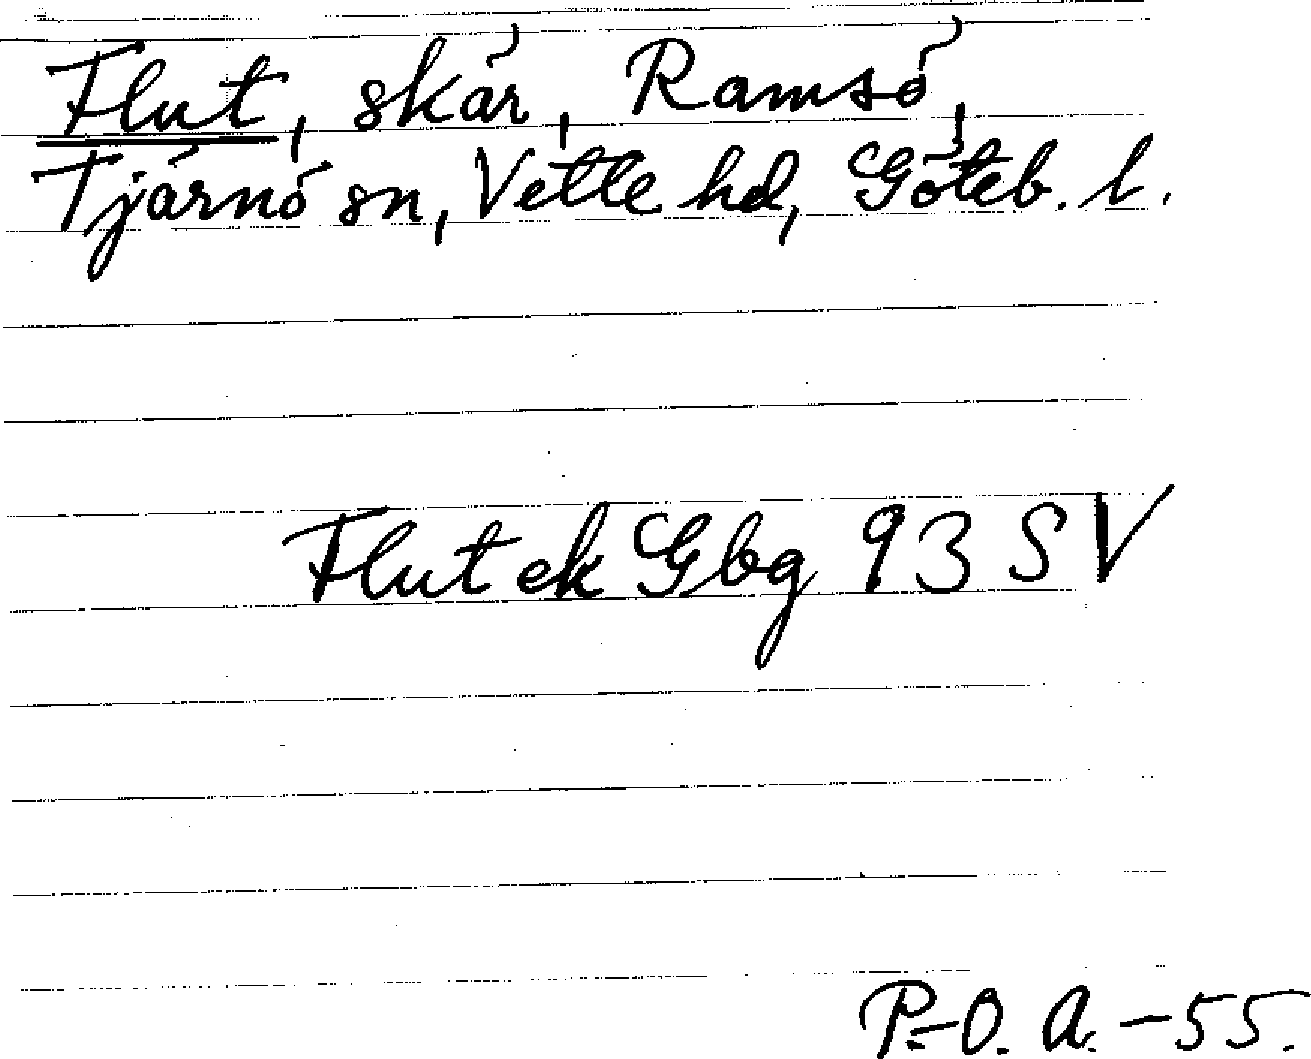 Flut, skär, Ramsö,
Tjärnö sn, Vette hd, Göteb. l.
Flut ek Gbg 93 SV
P.-O. A. -55.